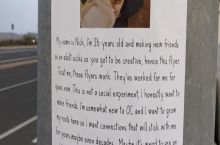 My name is Nick, I'm 26 years old and making new friends
as an adult sucks so you got to be creative, hence this flyer.
Trust me, these flyers work. They've worked for me for
years now. This is not a social experiment, I honestly want to
make friends. I'm somewhat new to OC and I want to grow
my roots here so I want connections that will stick with me
for years maybe even decades. Maybe it's